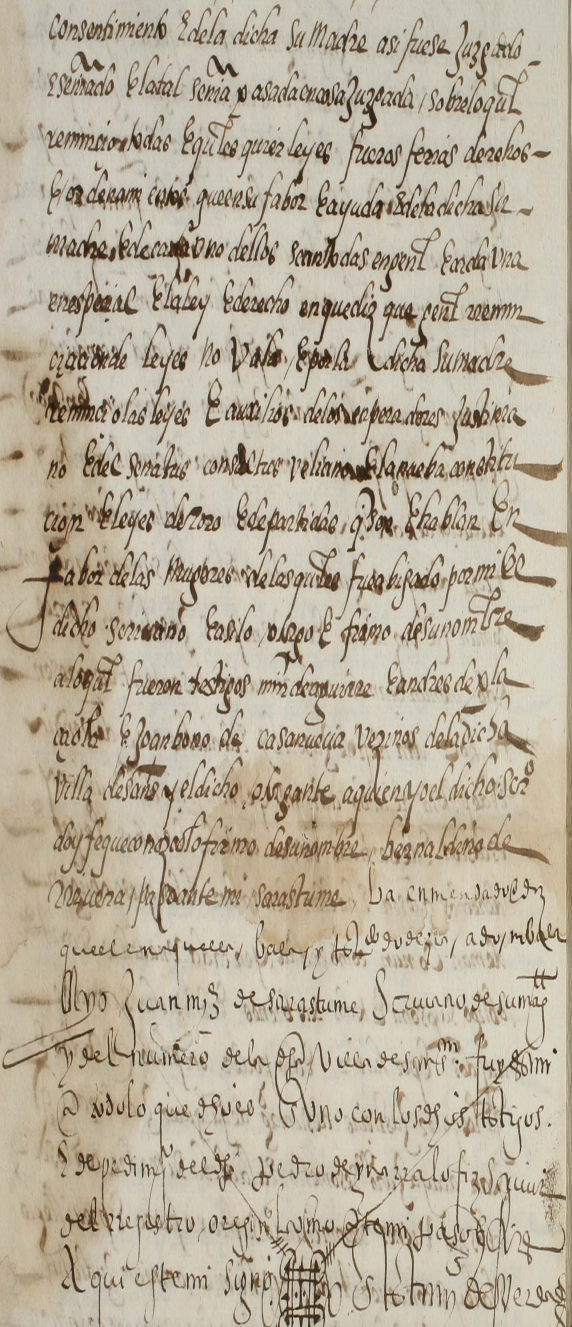 consentimiento E dela dicha su madre asi fuese Juzgado
E sentenciado E la tal senia pasada en cosa Juzgada / sobre lo qual
renuncio todas E quales quier leyes fueros ferias derechos
E ordenamientos que en su fabor E ayuda E de la dicha su
madre E de cada uno dellos sean todas en genl E cada una
en espeçial E la ley E derecho en que diz que genl renun
ciacion de leyes no vala E por la dicha su madre
renuncio las leyes E auxilios delos enperadores Justinia
no E del senatus consultus veliano E la nueba constitu
cion E leyes de toro E de partidas q son E hablan En
fabor de las mugeres de las quales fue abisado por mi El
dicho scrivano E asi lo otorgo E firmo de su nombre
a lo qual fueron testigos min de aguirre E andres de pla
E Joan bono de casanueva vezinos de la dicha
villa de sans y el dicho otorgante a quien yo el dicho scro
doy fe que conozco lo firmo de su nombre bernaldino de
paso ante mi sarastume ba enmendado do diz
bala y do dezia
E yo Juan miz de sarastume Scrivano de su mag
y del numero de la dha Villa de sans fuy presente
a todo lo que dho es En uno con los dhos testigos.
E de pedimio del dho pedro de lo fiz escrivir
del registro original como ante mi paso E fize
Aqui este mi signo En testimonio de Verdad